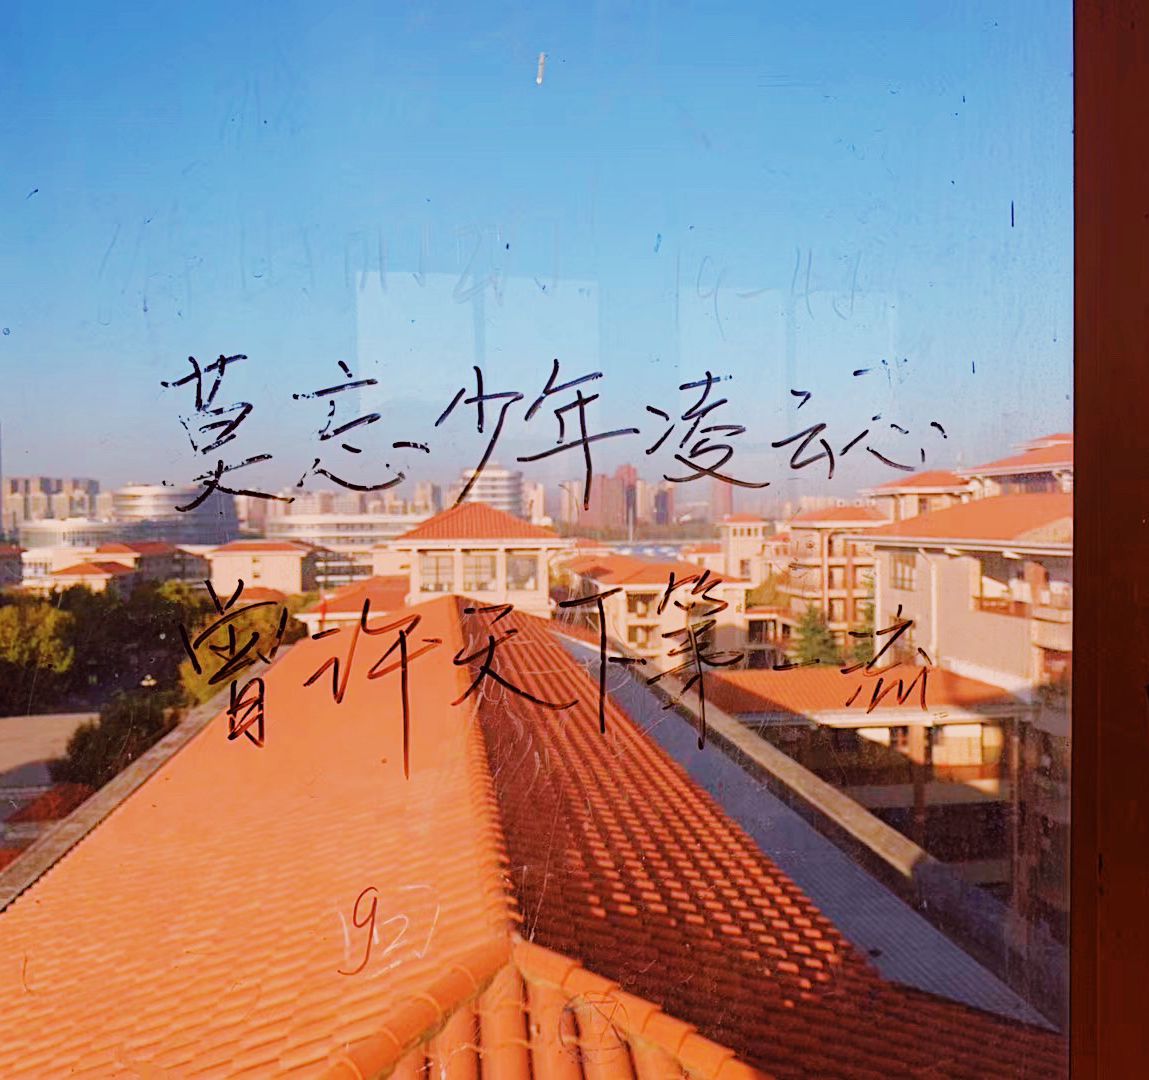 莫忘少年凌云心
曾许天下第一流
9